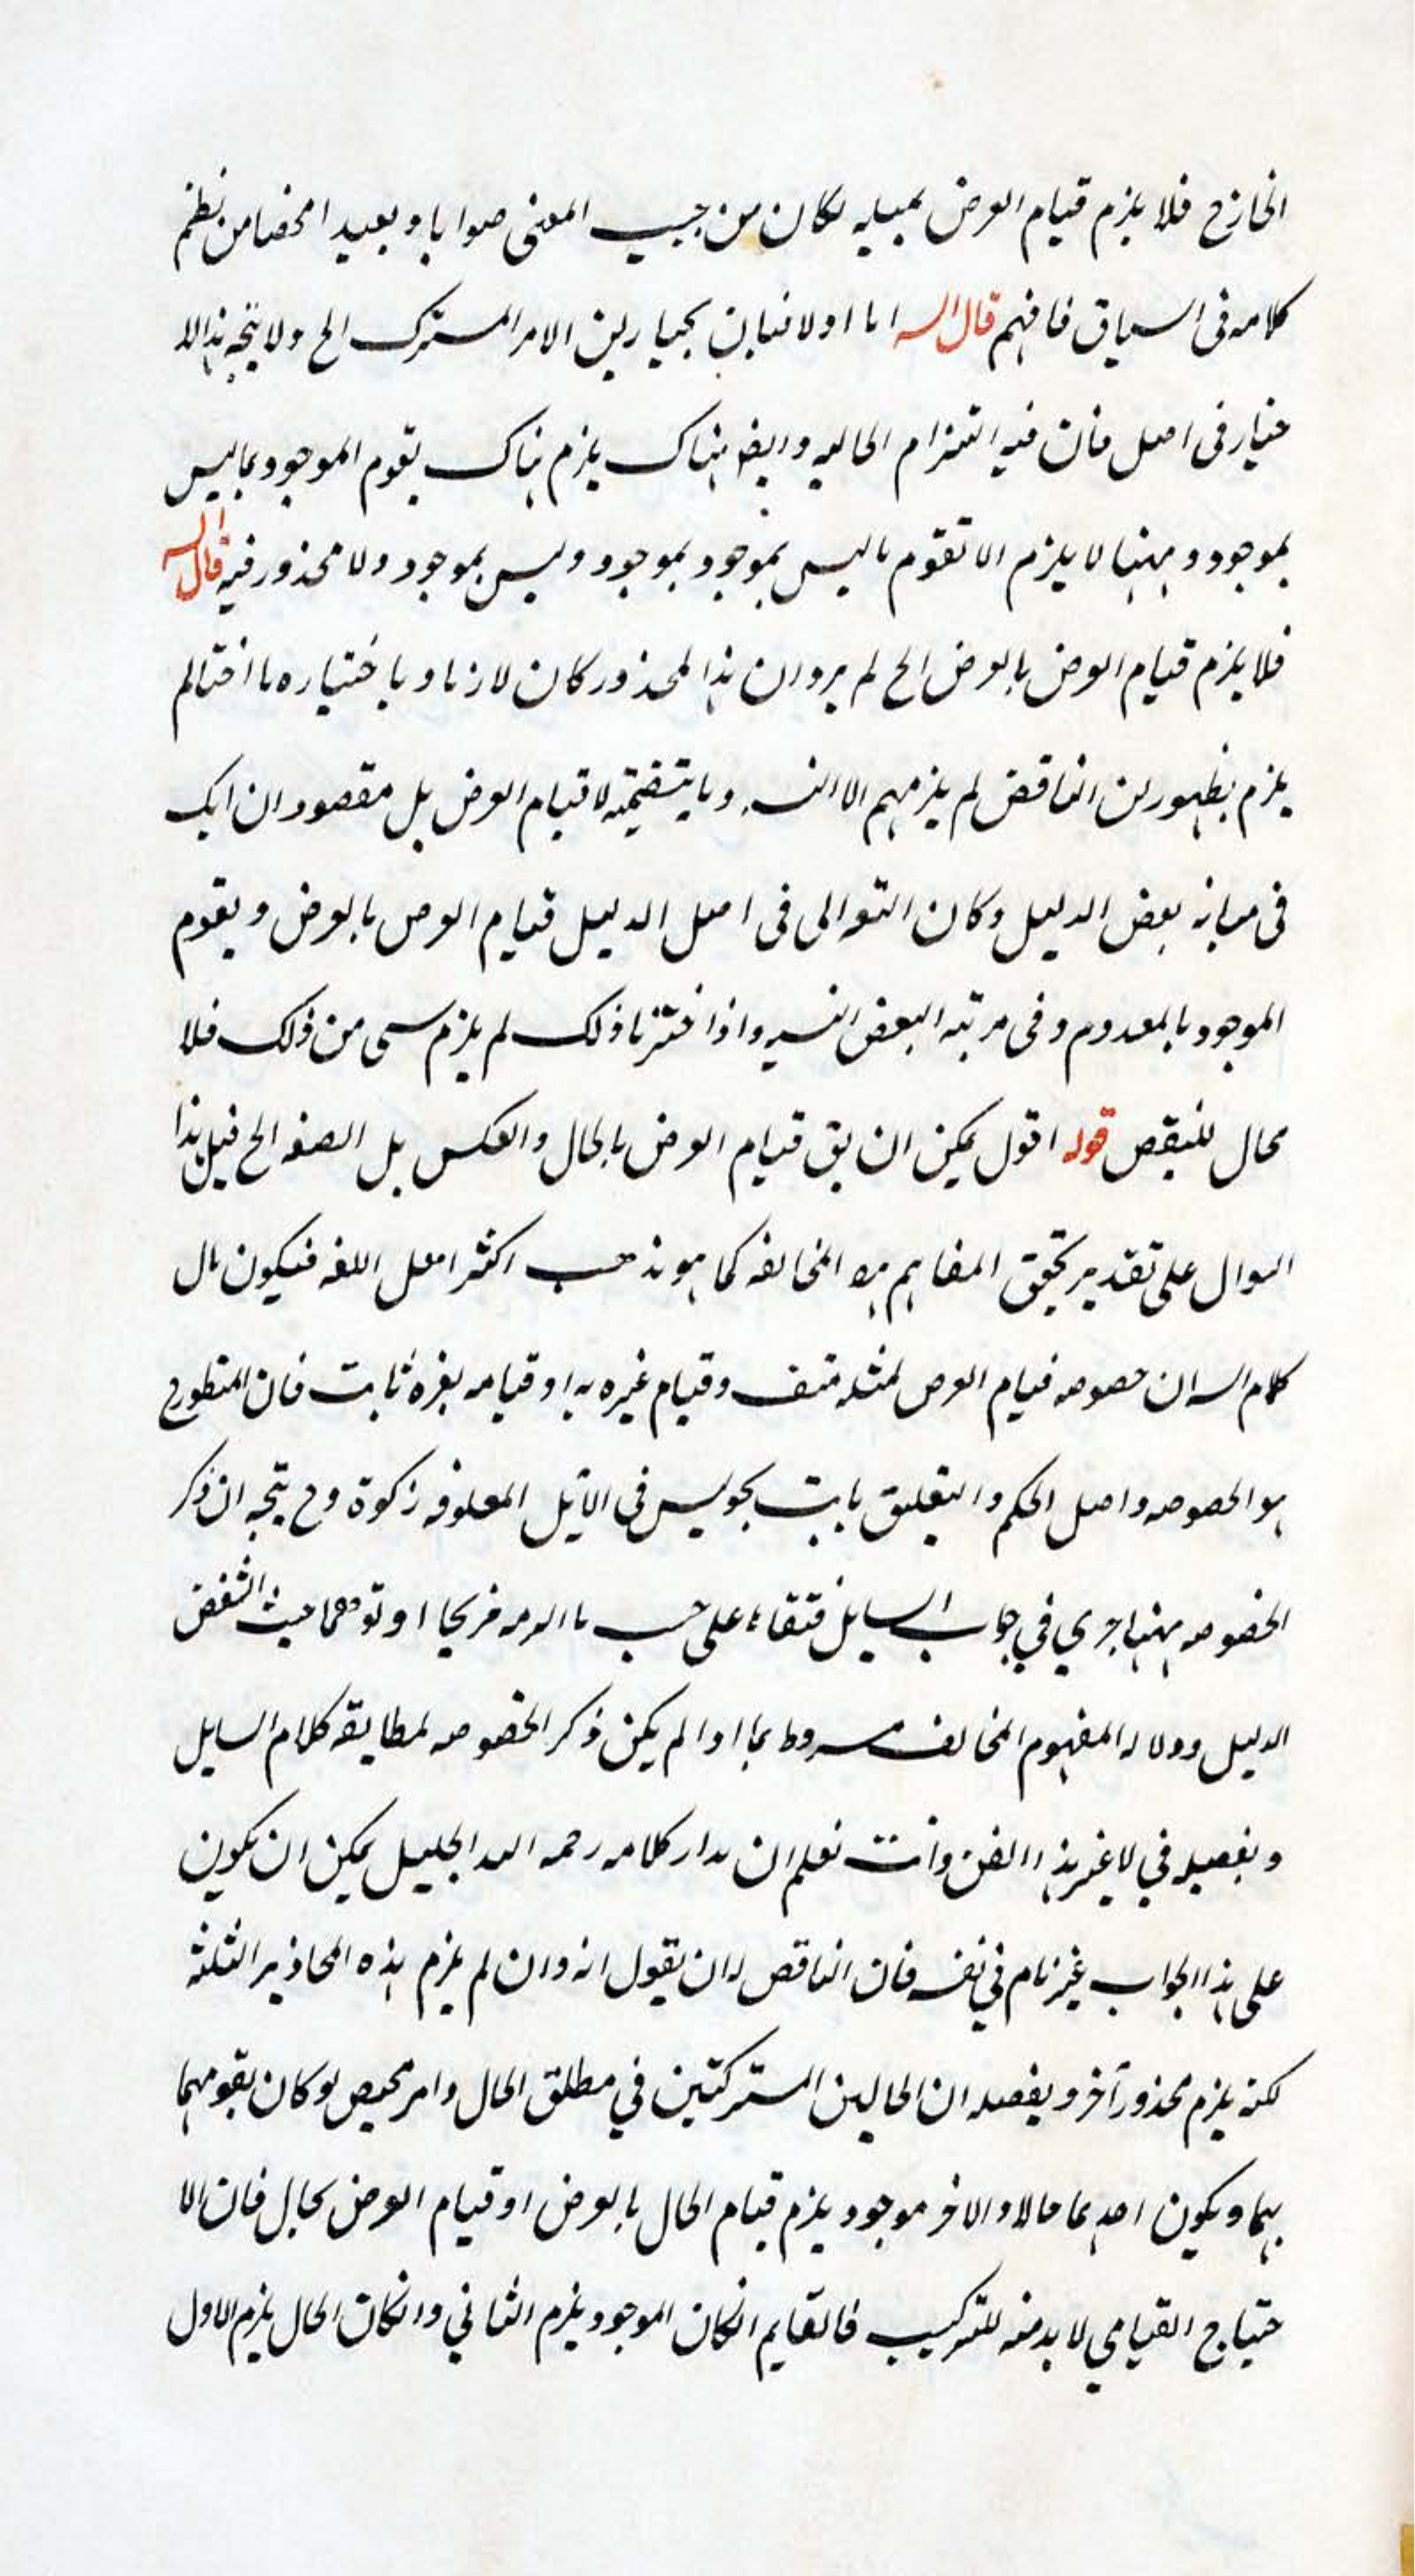 الخارج فلا يلزم قيام العرض بمثله لكان من حيث المعنى صوابا وبعيدا محضا من نظم
كلامه فى السياق فافهم قال الش اما اولا فبان يختار ان الامر المشترك الخ ولا يتجه هذا الا
ختيار فى اصل فان فيه التزام الحاليه وايضا هناك يلزم هناك تقوم الموجود بما ليس
بموجود وههنا لا يلزم الا تقوم ما ليس بموجود بموجود وليس بموجود ولا محذور فيه قال الش
فلا يلزم قيام العرض بالعرض الخ لم يرد ان هذا المحذور كان لازما و باختياره ما اختار لم
يلزم بظهور ان الناقض لم يلزمهم الا التسـ وما يتضمنه لا قيام العرض بل مقصود ان ايك
فى بعض الدليل وكان التوالى فى اصل الدليل قيام العرض بالعرض وتقوم
الموجود بالمعدوم وفى مرتبه البعض التسـ واذا اخترنا ذلك لم يلزم شى من ذلك فلا
محال للنقض قوله اقول يمكن ان يق قيام العرض بالحال والعكس بل الصفه الخ قيل هذا
السوال على تقدير تحقق المفاهيم المخالفه كما هو مذهب اكثر اهل اللغه فيكون مال
كلام الش ان خصوصه قيام العرض لمثله منتف وقيام غيره به او قيامه بغيره ثابت فان المنطوح
هو الخصوصه واصل الحكم والتعليق ثابت نحو ليس فى الابل المعلوفه زكوة وح يتجه ان ذكر
الخصوصه ههنا جرى في جواب السايل على حسب ما الزمه صريحا او توهما حيث النقض
الدليل ودلاله المفهوم المخالف مشروط بما اذا لم يكن ذكر الخصوصه لمطابقه كلام السايل
وتفصيله في لا غير هذا الفن وانت تعلم ان مدار كلامه رحمه الله الجليل يمكن ان يكون
على هذا الجواب غير تام في نفسه فان الناقض له ان يقول انه وان لم يلزم هذه المحاذير الثلثه
لكنه يلزم محذور آخر وتفصله ان الحالين المشتركتين في مطلق الحال وامر مخصص لو كان تقومهما
بهما ويكون احدهما حالا والاخر موجود يلزم قيام الحال بالعرض او قيام العرض بحال فان الا
حتياج القيامي لا بد منه للتركيب فالقايم انكان الموجود يلزم الثاني وانكان الحال يلزم الاول